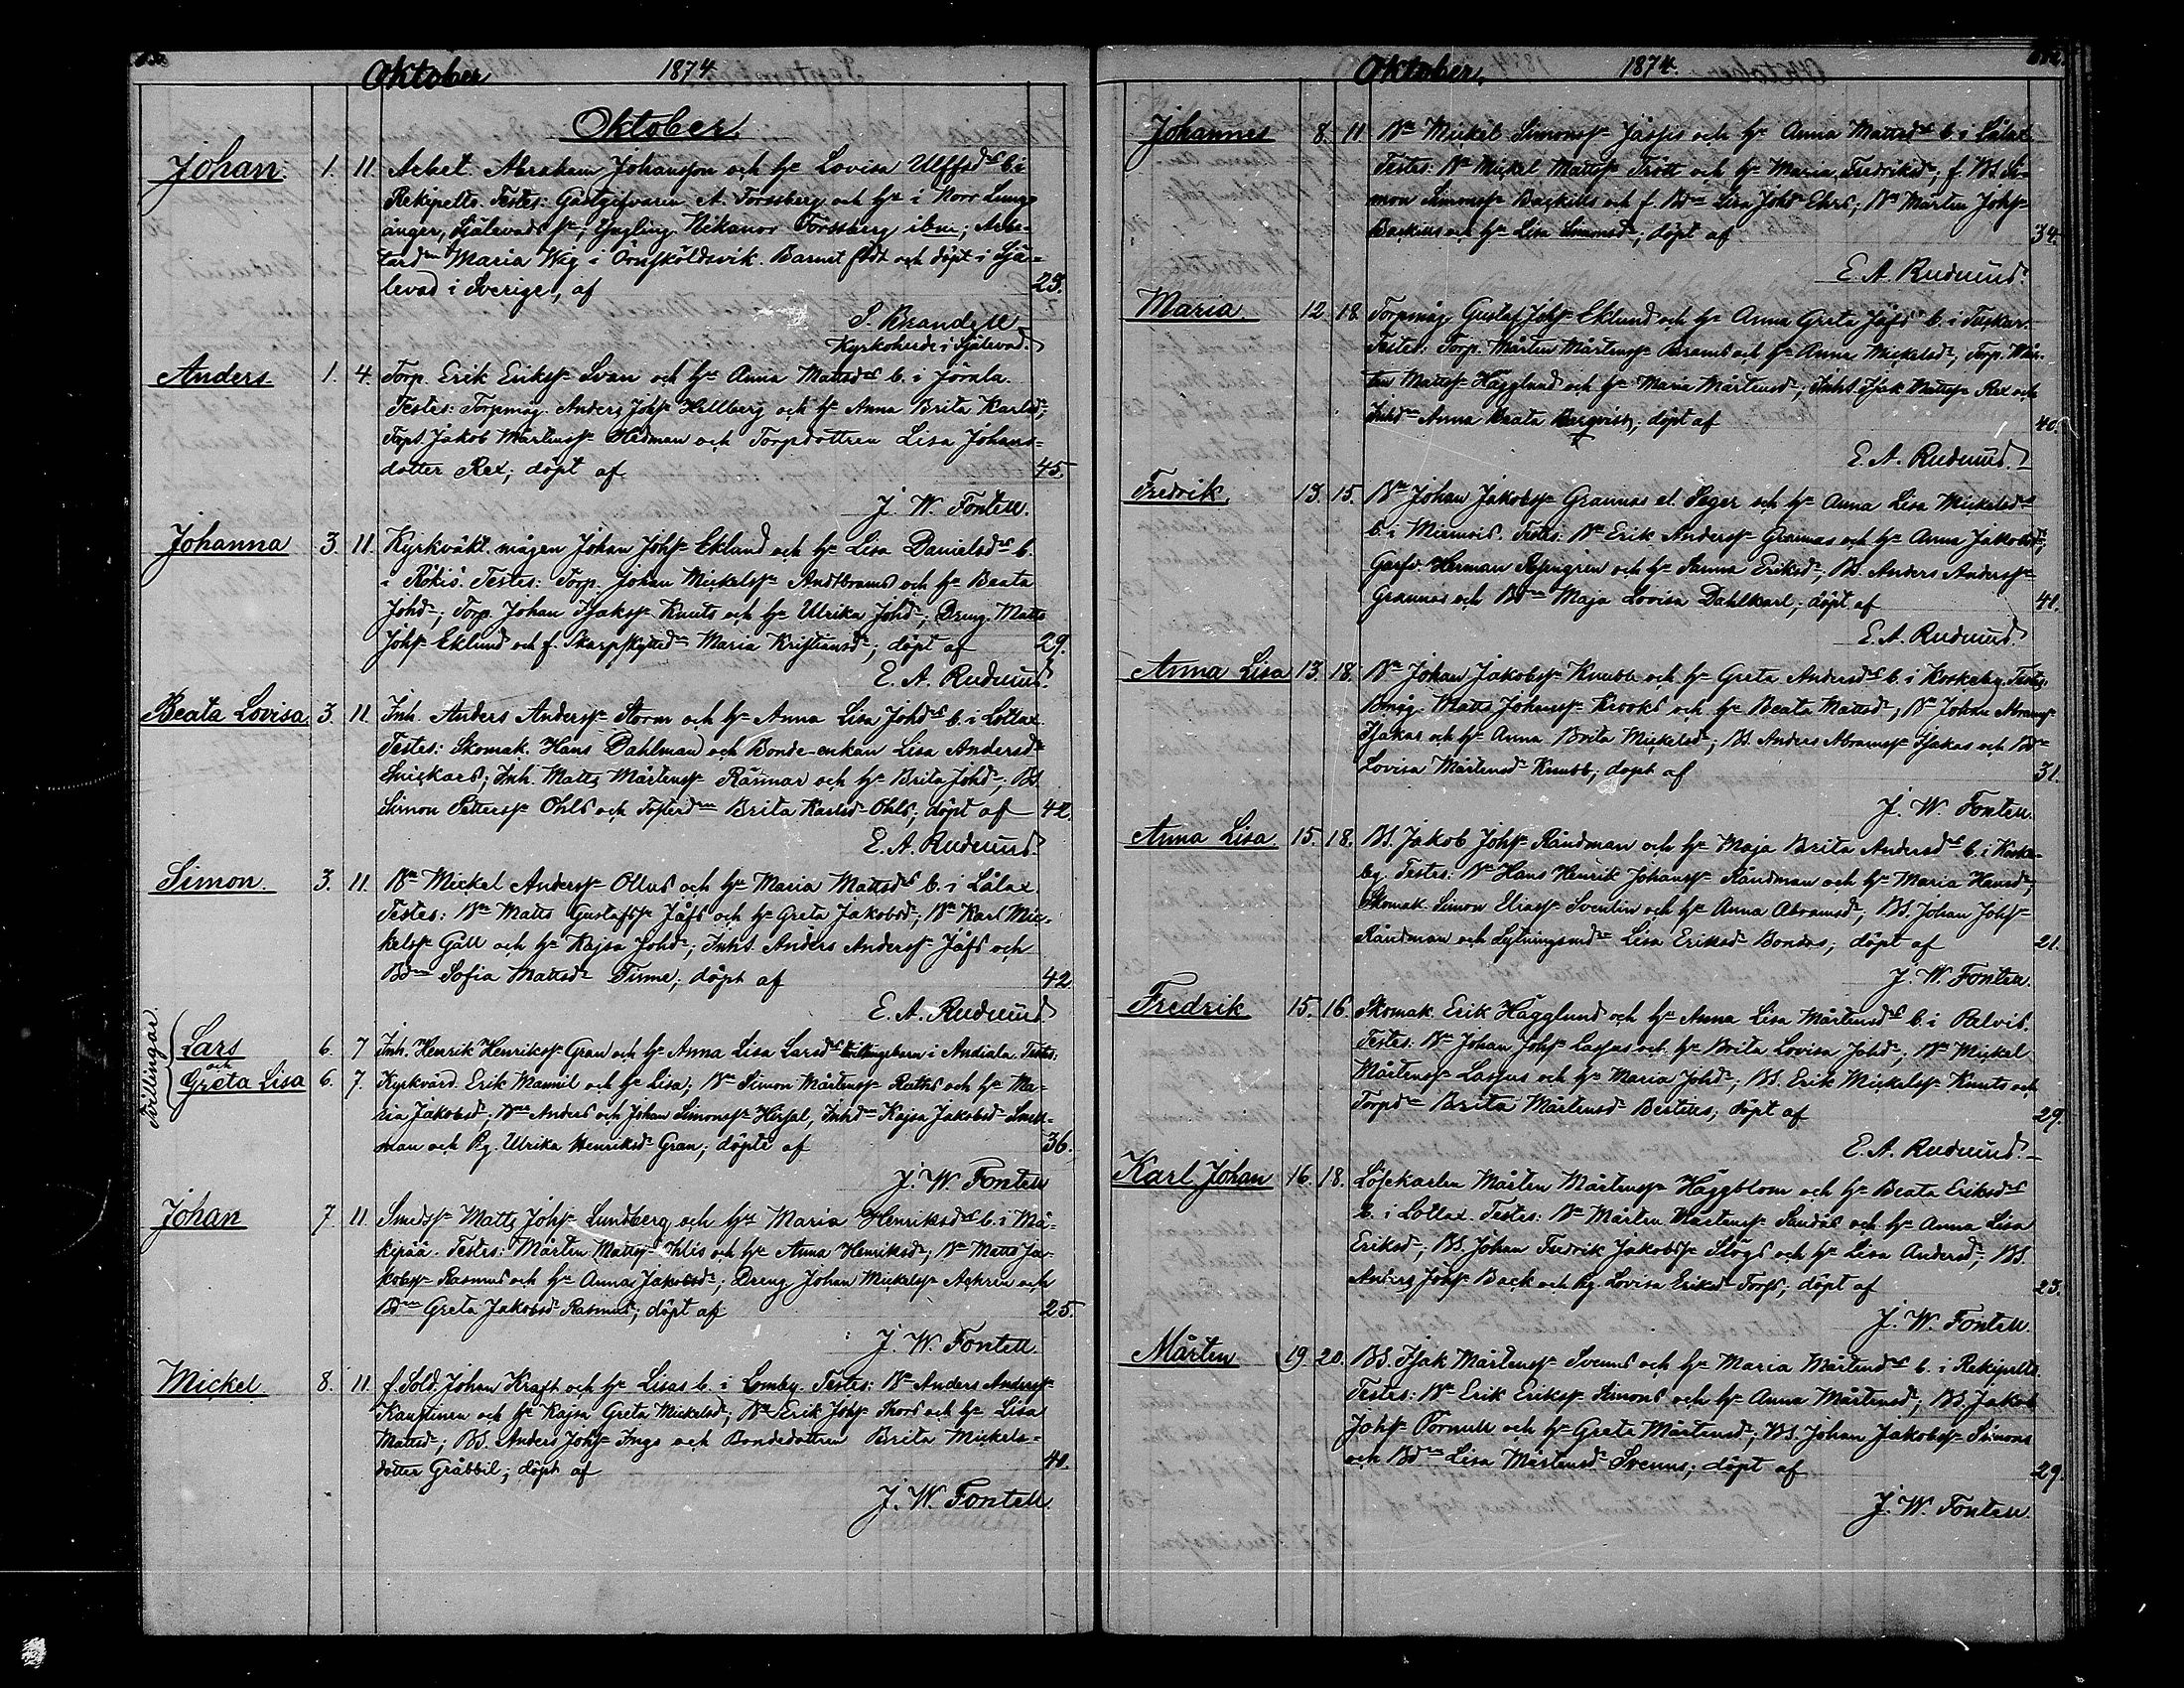 Oktober 1874
Oktober.
Johan. 1. 11. Arbet. Abraham Johansson och h. Lovisa Ulffsdr b. i
Rekipelto. Testes: Gästgifvaren A. Forssberg och h. i Norr Lungs-
ånger, Själevads sn; Yngling Nikanor Forssberg ibm; Arbe-
tardn Maria Wig i Örnsköldsvik. Barnet födt och döpt i Sjä-
levad i Sverige, af 23.
S. Brandell
Kyrkoherde i Själevad.
Anders. 1. 4. Torp. Erik Erikss. Svan och h. Anna Mattsds b. i Jörala.
Testes: Torpmåg. Anders Johs. Hellberg och h. Anna Brita Karlsd.;
Torps. Jakob Mårtenss. Hedman och Torpdottren Lisa Johans-
dotter Rex; döpt af 45.
J. W. Fontell.
Johanna 3. 11. Kyrkväkt. mågen Johan Johs. Eklund och h. Lisa Danielsds b.
i Rökiö. Testes: Torp. Johan Mickelss. Andtbrams och h. Beata
Johd.; Torp. Johan Isakss. Knuts och h. Ulrika Johd.; Dreng. Matts
Johs. Eklund och f. Skarpskytted. Maria Kristiansd.; döpt af 29.
E. A. Rudnäs.
Beata Lovisa 3. 11. Inh. Anders Anderss. Storm och h. Anna Lisa Johds b. i Lottax.
Testes: Skomak. Hans Dahlman och Bonde-enkan Lisa Andersd.
Snickars; Inh. Matts Mårtenss. Rännar och h. Brita Johd.; BS.
Simon Petterss. Ohls och Fosterdn Brita Karlsd. Ohls; döpt af 42.
E. A. Rudnäs.
Simon. 3. 11. Bn Mickel Anderss. Ollus och h. Maria Mattsds b. i Lålax.
Testes: Bn Matts Gustafss. Jåfs och h. Greta Jakobsd.; Bn Karl Mic-
kelss. Gåll och h. Kajsa Johd.; Inhs. Anders Anderss. Jåfs och
Bdn Sofia Mattsd. Finne; döpt af 42
E. A. Rudnäs
Tvillingar.
Lars 6. 7 Inh. Henrik Henrikss. Gran och h. Anna Lisa Larsds tvillingbarn i Andiala. Testes:
och
Greta Lisa 6. 7. Kyrkvärd. Erik Mannil och h. Lisa; Bn Simon Mårtenss. Ratks och h. Ma-
ria Jakobsd.; Bne Anders och Johan Simonss. Hirsal, Inhd. Kajsa Jakobsd.
man och Pg. Ulrika Henriksd. Gran; döpte af 36.
J. W. Fontell
Johan 7 11. Smedss. Matts Johs. Lundberg och h. Maria Henriksds b. i Mä-
kipää. Testes: Mårten Mattss. Ihlis och h. Anna Henriksd.; Bn Matts Ja-
kobss. Rasmus och h. Anna Jakobsd.; Dreng Johan Mickelss. Achren och
Bdn Greta Jakobsd. Rasmus; döpt af 25.
J. W. Fontell
Mickel 8. 11. f. Sold. Johan Kraft och h. Lisas b. i Lomby. Testes: Bn Anders Anderss.
Kaustinen och h. Kajsa Greta Mickelsd.; Bn Erik Johs. Thors och h. Lisa
Mattsd.; BS. Anders Johs. Ings och Bondedottren Brita Mickels-
dotter Gråbbil; döpt af 40.
J. W. Fontell.
Oktober, 1874.
Johannes 8. 11 Bn Mickel Simonss. Jåssis och h. Anna Mattsds b. i Lålax
Testes: Bn Mickel Mattss. Trött och h. Maria Fredriksd.; f. BS. Si-
mon Simonss. Backills och f. Bdn Lisa Johd. Ehrs; Bn Mårten Johs.
Backills och h. Lisa Simonsd.; döpt af 34.
E. A. Rudnäs.
Maria. 12. 18. Torpmåg. Gustaf Johs. Eklund och h. Anna Greta Jåfs b. i Tuckur.
Testes: Torp. Mårten Mårtenss. Brams och h. Anna Mickelsd.; Torp. Mår-
ten Mattss. Hägglund och h. Maria Mårtensd.; Inhs. Isak Mattss. Rex och
Inhd. Anna Beata Bergqvist; döpt af 40.
E. A. Rudnäs.
Fredrik. 13. 15. Bn Johan Jakobss. Grannas el. Seger och h. Anna Lisa Mickelsds
b. i Miemois. Testes: Bn Erik Anderss. Grannas och h. Anna Jakobsd.;
Garfv. Herman Rosengren och h. Sanna Eriksd.; BS. Anders Anderss.
Grannas och Bdn Maja Lovisa Dahlkarl; döpt af 41.
E. A. Rudnäs
Anna Lisa 13. 18. Bn Johan Jakobss. Knubb och h. Greta Andersds b. i Koskeby. Testes:
Bmåg. Matts Johanss. Krooks och h. Beata Mattsd.; Bn Johan Abramss.
Isakas och h. Anna Brita Mickelsd.; BS. Anders Abramss. Isakas och Bdn
Lovisa Mårtensd. Knubb; döpt af 31.
J. W. Fontell.
Anna Lisa 15. 18. BS. Jakob Johs. Rändman och h. Maja Brita Andersds b. i Koske-
by. Testes: Bn Hans Henrik Johanss. Rändman och h. Maria Hansd.;
Skomak. Simon Eliass. Sventin och h. Anna Abramsd.; BS. Johan Johs.
Rändman och Lytningsmd. Lisa Eriksd. Bondas; döpt af 21.
J. W. Fontell.
Fredrik 15. 16. Skomak. Erik Hägglund och h. Anna Lisa Mårtensds b. i Palvis.
Testes: Bn Johan Johs. Lassus och h. Brita Lovisa Johd.; Bn Mickel
Mårtenss. Lassus och h. Maria Johd.; BS. Erik Mickelss. Knuts och
Torpd. Brita Mårtensd. Bertils; döpt af 29.
E. A. Rudnäs
Karl Johan 16. 18. Löskarlen Mårten Mårtenss. Häggblom och h. Beata Eriksds
b. i Lottax. Testes: Bn Mårten Mårtenss. Sandås och h. Anna Lisa
Eriksd.; BS. Johan Fredrik Jakobss. Slögs och h. Lisa Andersd.; BS.
Anders Johs. Back och Pg. Lovisa Eriksd. Torss; döpt af 23.
J. W. Fontell.
Mårten 19. 20. BS. Isak Mårtenss. Svenns och h. Maria Mårtensds b. i Rekipelto.
Testes: Bn Erik Erikss. Simons och h. Anna Mårtensd.; BS. Jakob
Johs. Pornull och h. Greta Mårtensd.; BS. Johan Jakobss. Simons
och Bdn Lisa Mårtensd. Svenns; döpt af 29.
J. W. Fontell.